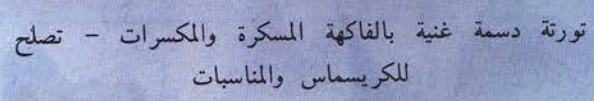 تورتة دسمة غنية بالفاكهة المسكرة والمكسرات – تصلح
للكريسماس والمناسبات